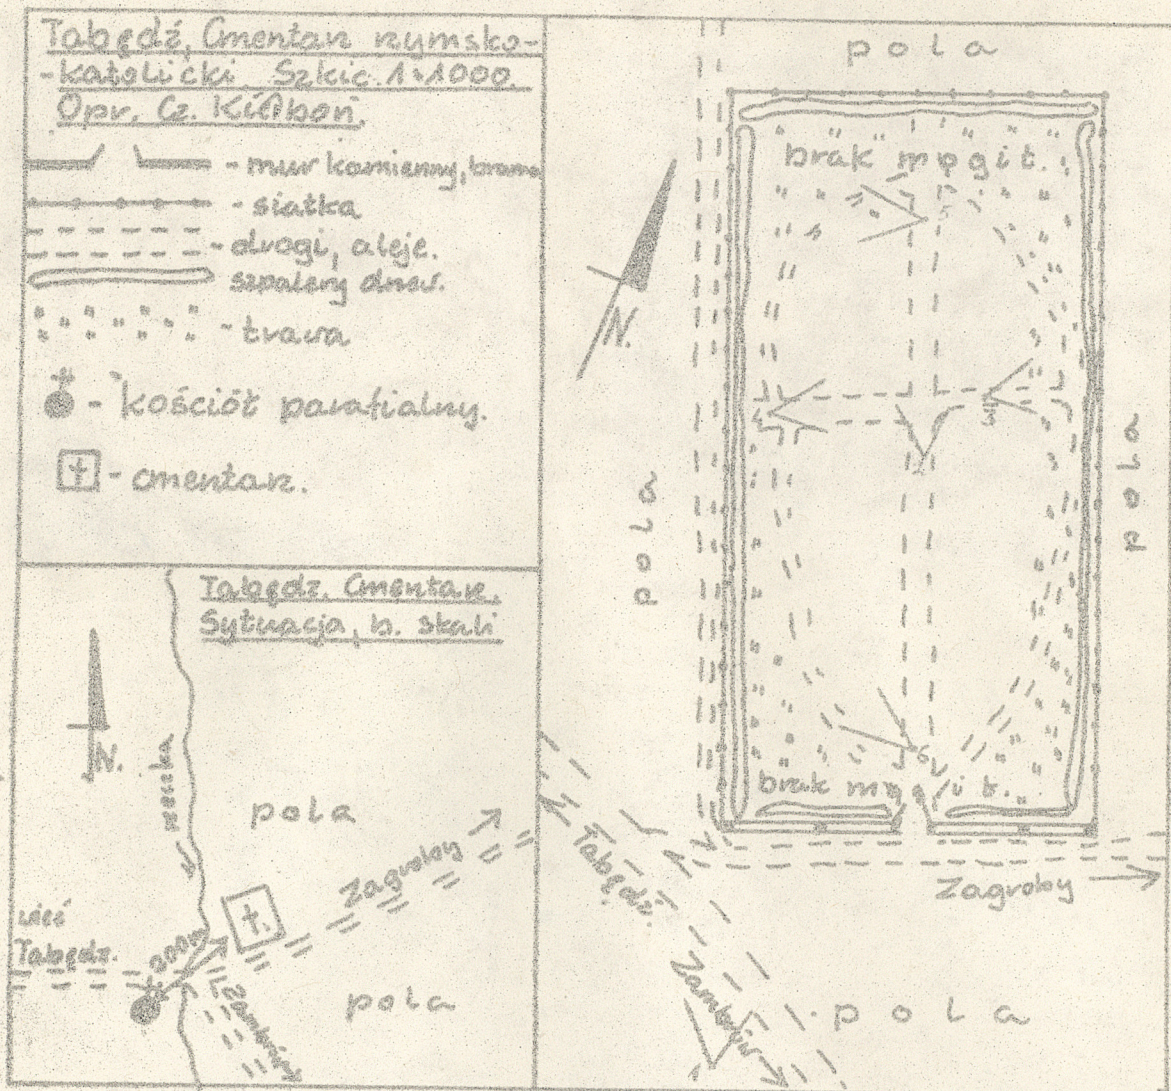 Tabędź, Cmentarz rzymsko-
-katolicki. Szkic 1:1000.
Opr. Cz.
- mur kamienny, brama
- siatka
- drogi, aleje.
szpalery drzew.
- trawa
- kościół parafialny.
- cmentarz.
Tabędz. Cmentarz.
Sytuacja, b. skali
N.
rzeczka
pola
Zagroby
wieś
Tabędz.
200m
†.
Zambrów
pola
pola
N.
brak mogił.
5
4
3
2
6
brak mogił.
pola
pola
Tabędź.
Zagroby
Zambrów
pola